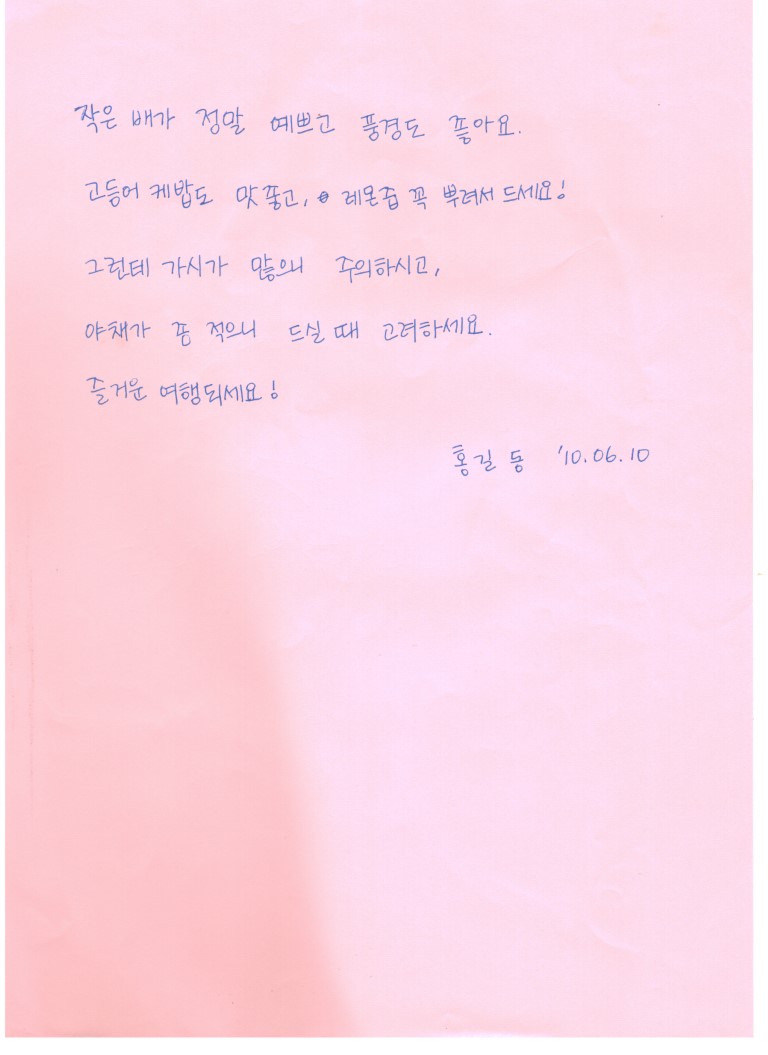 작은 배가 정말 예쁘고 풍경도 좋아요.
고등어 케밥도 맛좋고, 레몬즙 꼭 뿌려서 드세요!
그런데 가시가 많으니 주의하시고,
야채가 좀 적으니 드실 때 고려하세요.
즐거운 여행되세요!
홍길동 '10.06.10